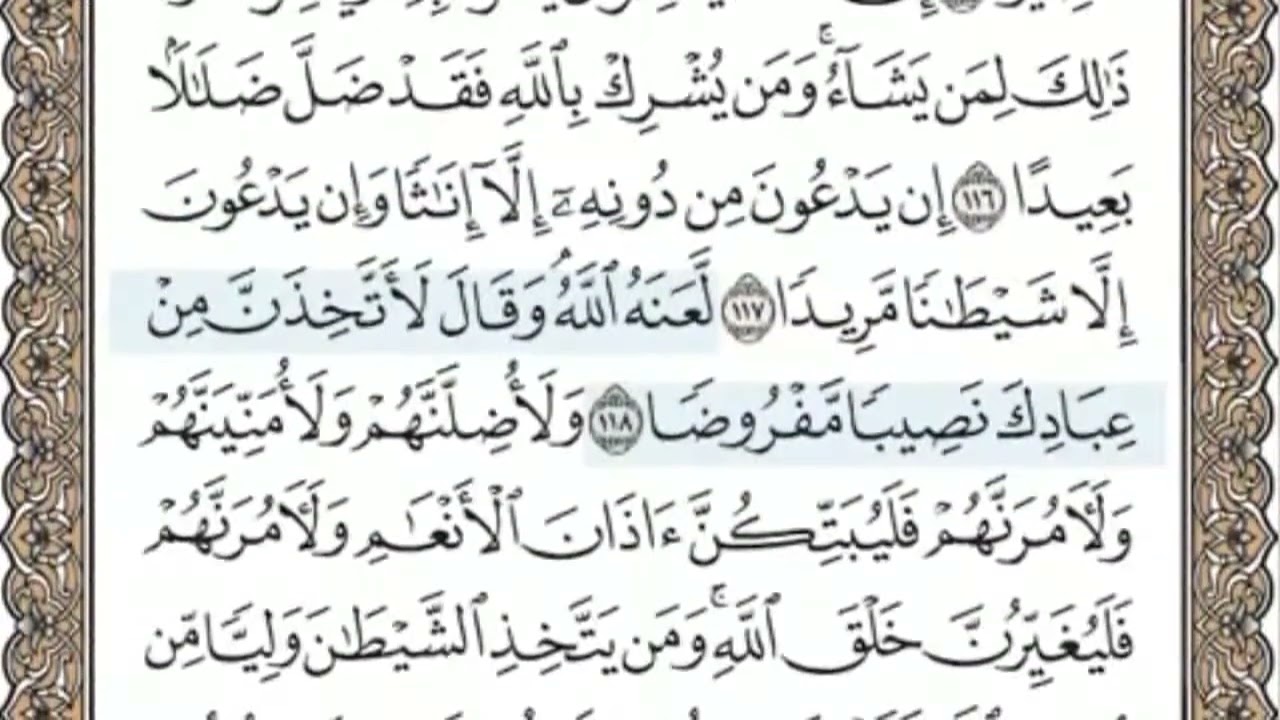 ذَٰلِكَ لِمَن يَشَآءُۚ وَمَن يُشْرِكْ بِٱللَّهِ فَقَدْ ضَلَّ ضَلَٰلًۢا
بَعِيدًا ١١٦ إِن يَدْعُونَ مِن دُونِهِۦٓ إِلَّآ إِنَٰثًا وَإِن يَدْعُونَ
إِلَّا شَيْطَٰنًا مَّرِيدًا ١١٧ لَّعَنَهُ ٱللَّهُۘ وَقَالَ لَأَتَّخِذَنَّ مِنْ
عِبَادِكَ نَصِيبًا مَّفْرُوضًا ١١٨ وَلَأُضِلَّنَّهُمْ وَلَأُمَنِّيَنَّهُمْ
وَلَءَامُرَنَّهُمْ فَلَيُبَتِّكُنَّ ءَاذَانَ ٱلْأَنْعَٰمِ وَلَءَامُرَنَّهُمْ
فَلَيُغَيِّرُنَّ خَلْقَ ٱللَّهِۚ وَمَن يَتَّخِذِ ٱلشَّيْطَٰنَ وَلِيًّا مِّن